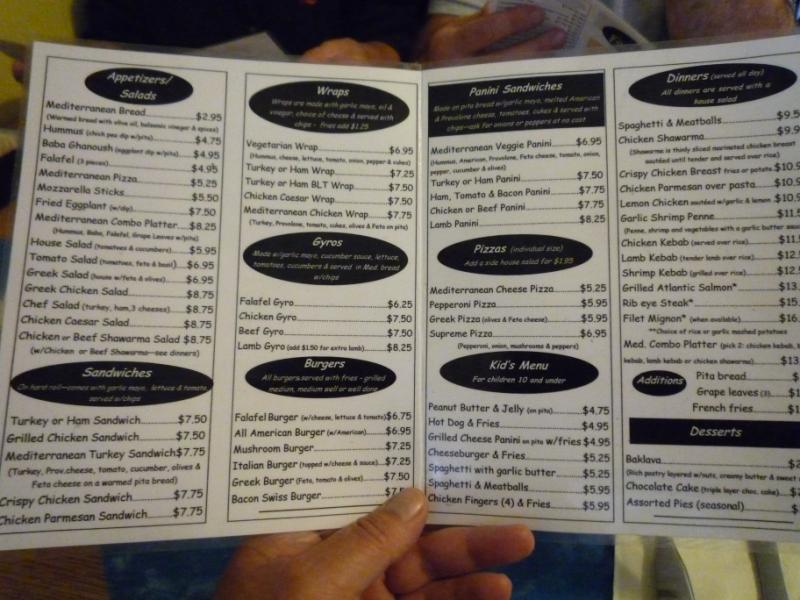 Appetizers/
Salads
Mediterranean Bread $2.95
(Warmed bread with olive oil, balsamic vinegar & spices)
Hummus (chick pea dip w/pita) $4.75
Baba Ghanoush (eggplant dip w/pita) $4.95
Falafel (3 pieces) $4.95
Mediterranean Pizza $5.25
Mozzarella Sticks $5.50
Fried Eggplant (w/dip) $7.50
Mediterranean Combo Platter $8.25
(Hummus, Baba, Falafel, Grape Leaves w/pita)
House Salad (tomatoes & cucumbers) $5.95
Tomato Salad (tomatoes, feta & basil) $6.95
Greek Salad (house w/feta & olives) $6.95
Greek Chicken Salad $8.75
Chef Salad (turkey, ham,3 cheeses) $8.75
Chicken Caesar Salad $8.75
Chicken or Beef Shawarma Salad $8.75
(w/Chicken or Beef Shawarma—see dinners)
Sandwiches
On hard roll—comes with garlic mayo, lettuce & tomato,
served w/chips
Turkey or Ham Sandwich $7.50
Grilled Chicken Sandwich $7.50
Mediterranean Turkey Sandwich $7.75
(Turkey, Prov.cheese, tomato, cucumber, olives &
Feta cheese on a warmed pita bread)
Crispy Chicken Sandwich $7.75
Chicken Parmesan Sandwich $7.75
Wraps
Wraps are made with garlic mayo, oil &
vinegar, choice of cheese & served with
chips - fries add $1.25
Vegetarian Wrap $6.95
(Hummus, cheese, lettuce, tomato, onion, pepper & cukes)
Turkey or Ham Wrap $7.25
Turkey or Ham BLT Wrap $7.50
Chicken Caesar Wrap $7.50
Mediterranean Chicken Wrap $7.75
(Turkey, Provolone, tomato, cukes, olives & Feta on pita)
Gyros
Made w/garlic mayo, cucumber sauce, lettuce,
tomatoes, cucumbers & served in Med. bread
w/chips
Falafel Gyro $6.25
Chicken Gyro $7.50
Beef Gyro $7.50
Lamb Gyro (add $1.50 for extra lamb) $8.25
Burgers
All burgers served with fries - grilled
medium, medium well or well done
Falafel Burger (w/cheese, lettuce & tomato) $6.75
All American Burger (w/American) $6.95
Mushroom Burger $7.25
Italian Burger (topped w/cheese & sauce) $7.25
Greek Burger (Feta, tomato & olives) $7.50
Bacon Swiss Burger $7.5
Panini Sandwiches
Made on pita bread w/garlic mayo, melted American
& Provolone cheese, tomatoes, cukes & served with
chips—ask for onions or peppers at no cost
Mediterranean Veggie Panini $6.95
(Hummus, American, Provolone, Feta cheese, tomato, onion,
pepper, cucumber & olives)
Turkey or Ham Panini $7.50
Ham, Tomato & Bacon Panini $7.75
Chicken or Beef Panini $7.75
Lamb Panini $8.25
Pizzas (individual size)
Add a side house salad for $1.95
Mediterranean Cheese Pizza $5.25
Pepperoni Pizza $5.95
Greek Pizza (olives & Feta cheese) $5.95
Supreme Pizza $6.95
(Pepperoni, onion, mushrooms & peppers)
Kid's Menu
For children 10 and under
Peanut Butter & Jelly (on pita) $4.75
Hot Dog & Fries $4.95
Grilled Cheese Panini on pita w/fries $4.95
Cheeseburger & Fries $5.25
Spaghetti with garlic butter $5.25
Spaghetti & Meatballs $5.95
Chicken Fingers (4) & Fries $5.95
Dinners (served all day)
All dinners are served with a
house salad
Spaghetti & Meatballs $9.5
Chicken Shawarma $9.9
(Shawarma is thinly sliced marinated chicken breast
sautéed until tender and served over rice)
Crispy Chicken Breast fries or potato $10.9
Chicken Parmesan over pasta $10.9
Lemon Chicken sautéed w/garlic & lemon $10.9
Garlic Shrimp Penne $11.5
(Penne, shrimp and vegetables with a garlic butter sau
Chicken Kebab (served over rice) $11.
Lamb Kebab (tender lamb over rice) $12.
Shrimp Kebab (grilled over rice) $12.
Grilled Atlantic Salmon* $13.
Rib eye Steak* $15.
Filet Mignon* (when available) $16.
**Choice of rice or garlic mashed potatoes
Med. Combo Platter (pick 2: chicken kebab, b
kebab, lamb kebab or chicken shawarma) $13
Additions
Pita bread $
Grape leaves (3) $1
French fries $1
Desserts
Baklava $2
(Rich pastry layered w/nuts, creamy butter & sweet s
Chocolate Cake (triple layer choc. cake) $
Assorted Pies (seasonal) $